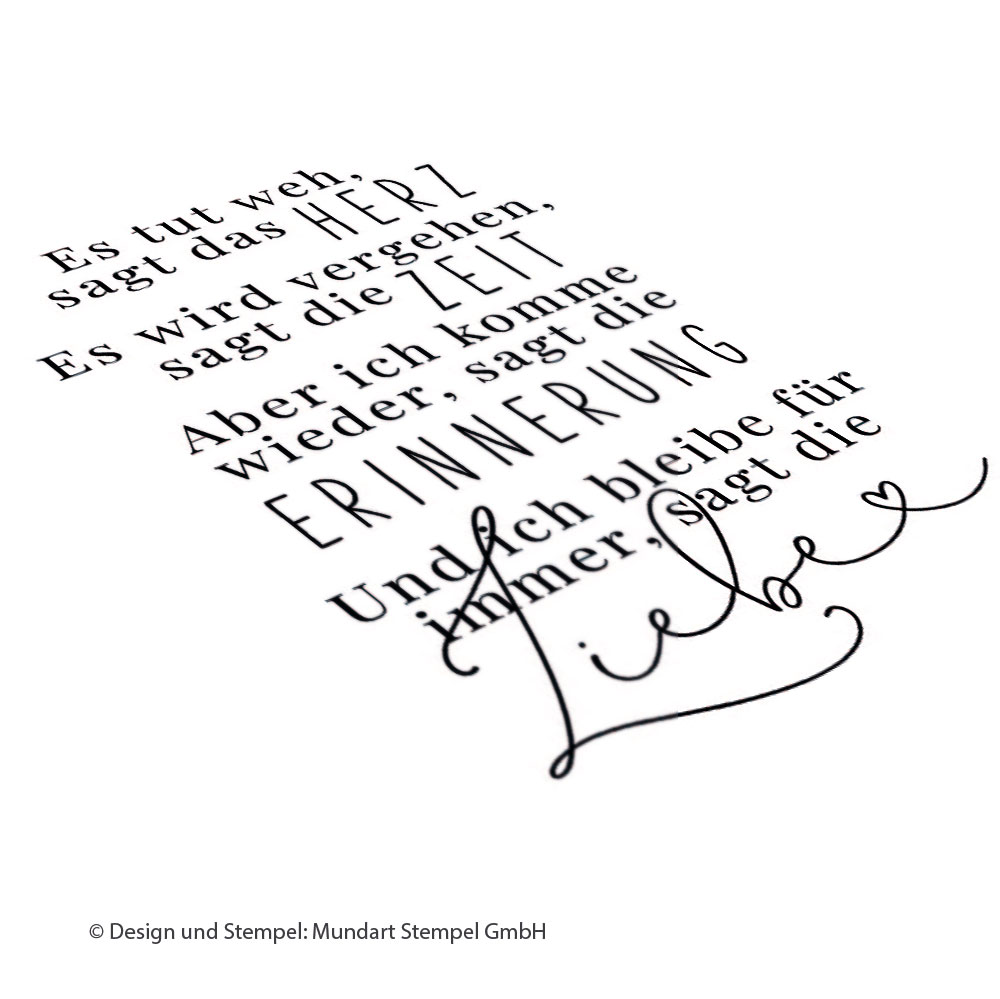 Es tut weh,
sagt das HERZ
Es wird vergehen,
sagt die ZEIT
Aber ich komme
wieder, sagt die
ERINNERUNG
Und ich bleibe für
immer, sagt die
Liebe
© Design und Stempel: Mundart Stempel GmbH